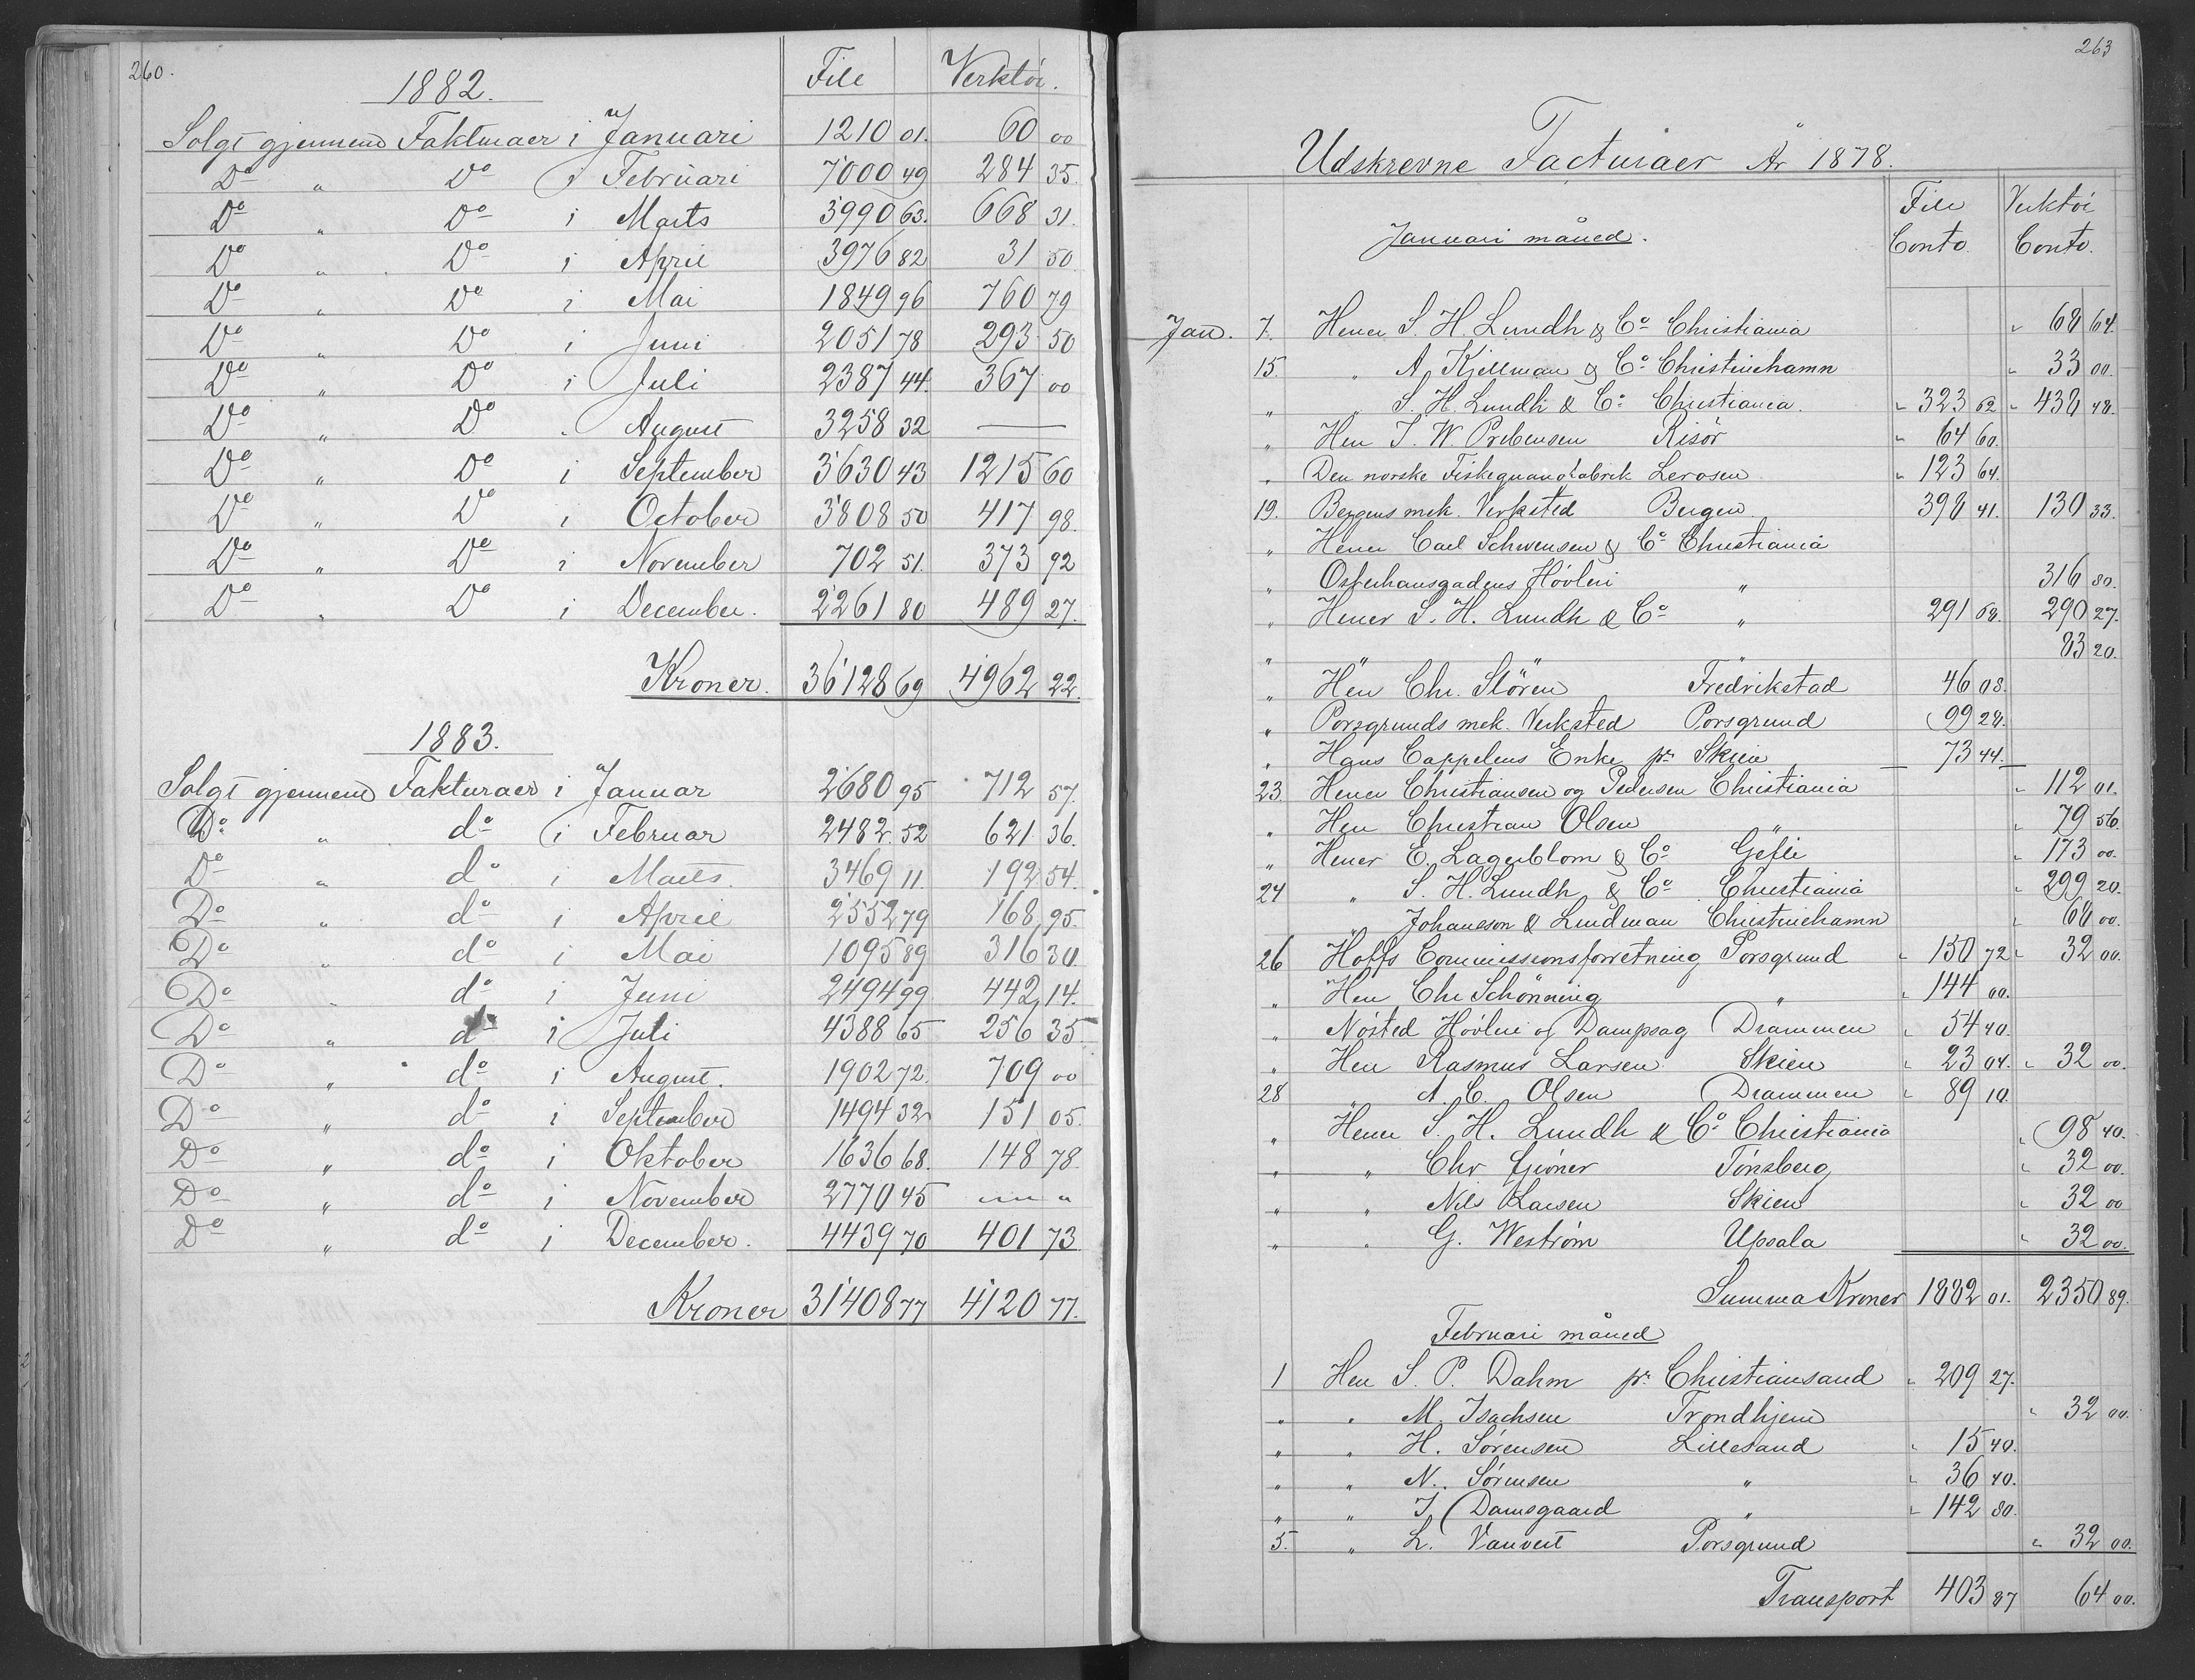 260.
File Verktöi.
1882.
Solgt gjennem Fakturaer i Januari 1210 01. 60 00
Do " Do i Februari 7000 49 284 35.
Do " Do i Marts 3990 63. 668 31.
Do " Do i April 3976 82 31 50
Do " Do i Mai 1849 96 760 79
Do " Do i Juni 2051 78 293 50
Do " Do i Juli 2387 44. 367 00
Do " Do . August 3258 32 —
Do " Do i September 3630 43 1215 60
Do " Do i October 3808 50 417 98.
Do " Do i November 702 51. 373 92
Do " Do i December. 2261 80 489 27.
Kroner. 36128 69 4962 22.
1883.
Solgt gjennem Fakturaer i Januar 2680 95 712 57.
Do " do i Februar 2482. 52 621. 36.
Do " do i Marts. 3469 11. 192 54.
Do " do i April 2552 79 168 95.
Do " do i Mai 1095 89 316 30
Do " do i Juni 2494 99 442 14.
Do " do i Juli 4388 65 256 35
Do " do i August. 1902 72. 709 00
Do " do i September 1494 32 151 05.
Do " do i Oktober 1636 68. 148 78.
Do " do i November 2770 45 — "
Do " do i December. 4439 70 401 73
Kroner 31408 77 4120 77.
263
Udskrevne Facturaer År 1878.
File Conto. Verktöi Conto.
Januari måned.
Jan. 7. Herrer S. H. Lundh & Co Christiania " 68 64.
15. " A. Kjellman & Co Christinehamn " 33 00.
" " S. H. Lundh & Co Christiania. " 323 62 " 438 48.
" Herr J. W. Prebensen Risör " 64 60.
" Den norske Fiskeguanofabrik Lerosen " 123 64.
19. Bergens mek. Verksted Bergen. 398 41. 130 33.
" Herrer Carl Schwensen & Co Christiania
" Osterhausgadens Hövleri " 316 80.
" Herrer S. H. Lundh & Co " 291 68. 290 27.
" " " 83 20.
" Herr Chr. Stören Fredrikstad 46 08.
" Porsgrunds mek. Verksted Porsgrund 99 28.
" Hans Cappelens Enke pr Skien 73 44.
23. Herrer Christiansen og Pedersen Christiania " 112 01.
" Herr Christian Olsen " " 79 56.
" Herrer E. Lagerblom & Co Gefle " 173 00.
24 " S. H. Lundh & Co Christiania " 299 20.
" Johanson & Lindman Christinehamn " 68 00.
26 Hoffs Commissionsforretning Porsgrund " 150 72 " 32 00.
" Herr Chr Schönning " " 144 00.
" Nösted Hövleri og Dampsag Drammen " 54 40.
" Herr Rasmus Larsen Skien " 23 04. " 32 00.
28 " A. C. Olsen Drammen " 89 10.
" Herrer S. H. Lundh & Co Christiania " 98 40.
" " Chr Gröner Tönsberg " 32 00.
" " Nils Larsen Skien " 32 00
" " G. Weström Upsala " 32 00.
Summa Kroner 1882 01. 2350 89.
Februari måned
1 Herr S. P. Dahm pr Christiansand " 209 27.
" " M. Isachsen Trondhjem " 32 00.
" " H. Sörensen Lillesand " 15 40.
" " N. Sörensen " " 36 40.
" " J. Damsgaard " " 142 80.
5. " L. Vauvert Porsgrund " 32 00.
Transport 403 87 64 00.